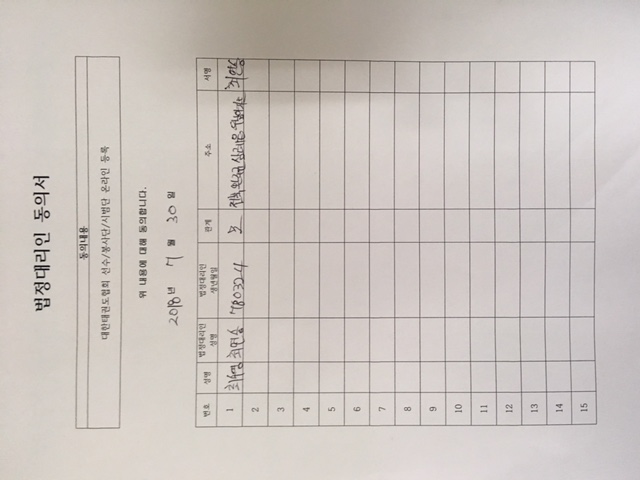 법정대리인 동의서
동의내용
대한태권도협회 선수/봉사단/시범단 온라인 등록
위 내용에 대해 동의합니다.
2018년 7 월 30 일
번호 성명 법정대리인 성명 법정대리인 생년월일 관계 주소 서명
1 780324 부 전북 완주군 삼례읍
2
3
4
5
6
7
8
9
10
11
12
13
14
15